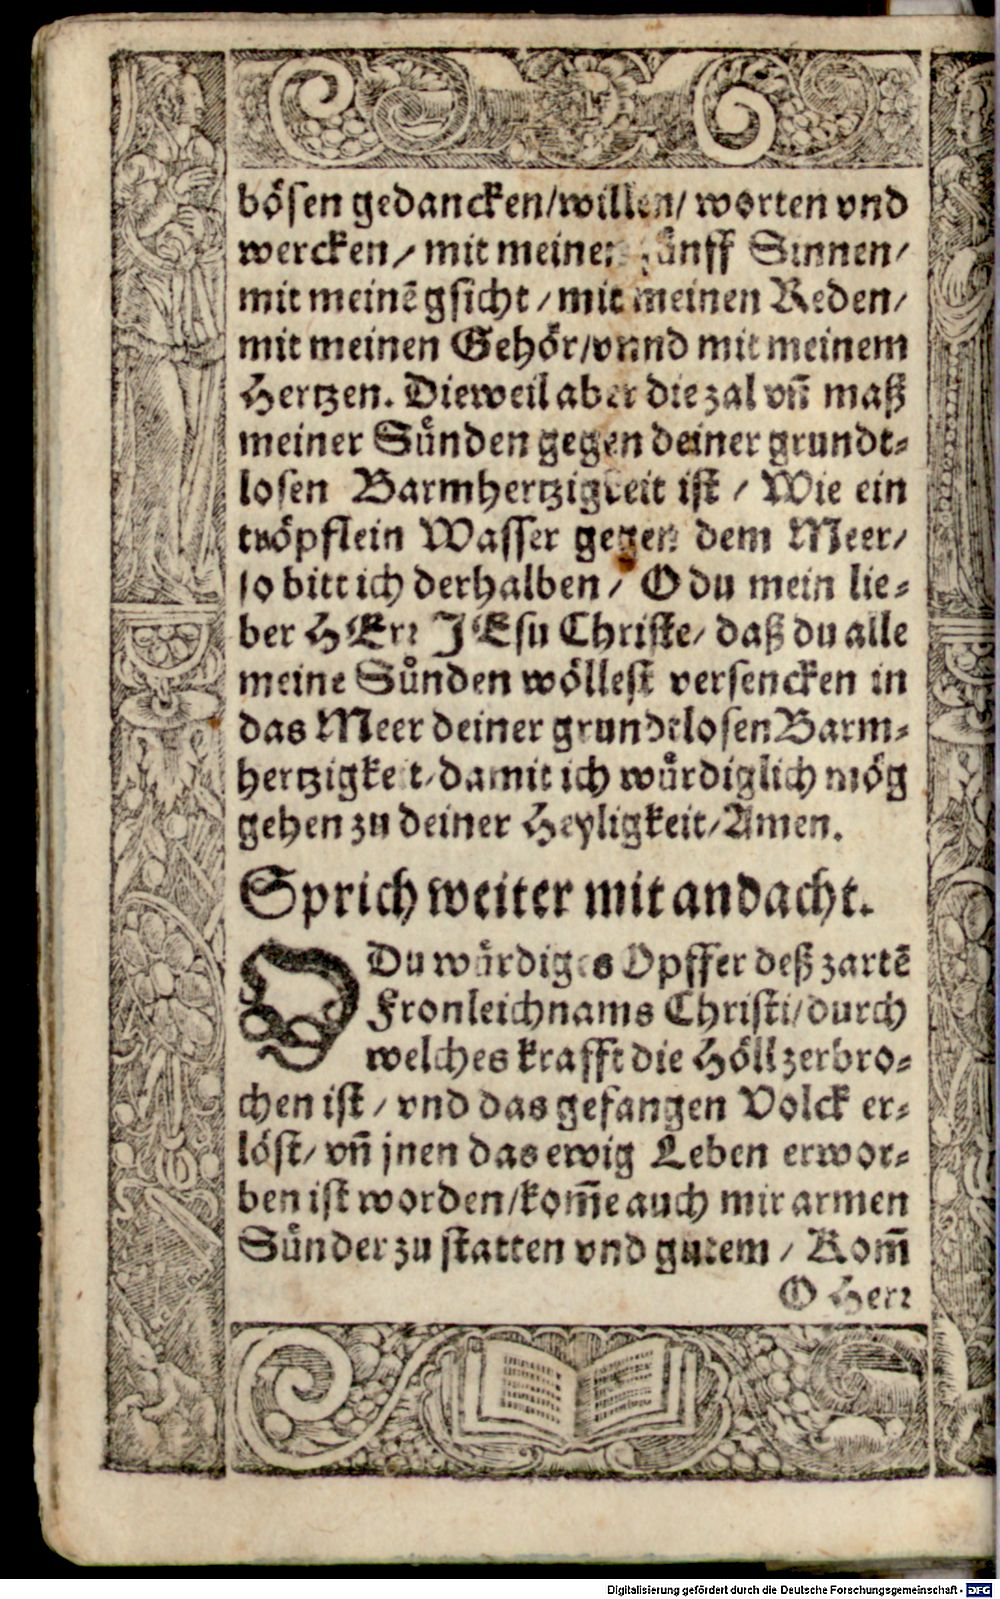 bösen gedancken/willen/ worten vnd
wercken/ mit meinen fünff Sinnen/
mit meinē gsicht/ mit meinen Reden/
mit meinen Gehör/vnnd mit meinem
Hertzen. Dieweil aber die zal vn̄ maß
meiner Sünden gegen deiner grundt-
losen Barmhertzigkeit ist/ Wie ein
tröpflein Wasser gegen dem Meer/
so bitt ich derhalben/ O du mein lie-
ber HErr JEsu Christe/ daß du alle
meine Sünden wöllest versencken in
das Meer deiner grundtlosen Barm-
hertzigkeit/damit ich würdiglich mög
gehen zu deiner Heyligkeit/Amen.
Sprich weiter mit andacht.
O Du würdiges Opffer deß zartē
Fronleichnams Christi/durch
welches krafft die Höll zerbro-
chen ist/ vnd das gefangen Volck er-
löst/ vn̄ jnen das ewig Leben erwor-
ben ist worden/kom̄e auch mir armen
Sünder zu statten vnd gutem/ Kom̄
O Herr
Digitalisierung gefördert durch die Deutsche Forschungsgemeinschaft - DFG